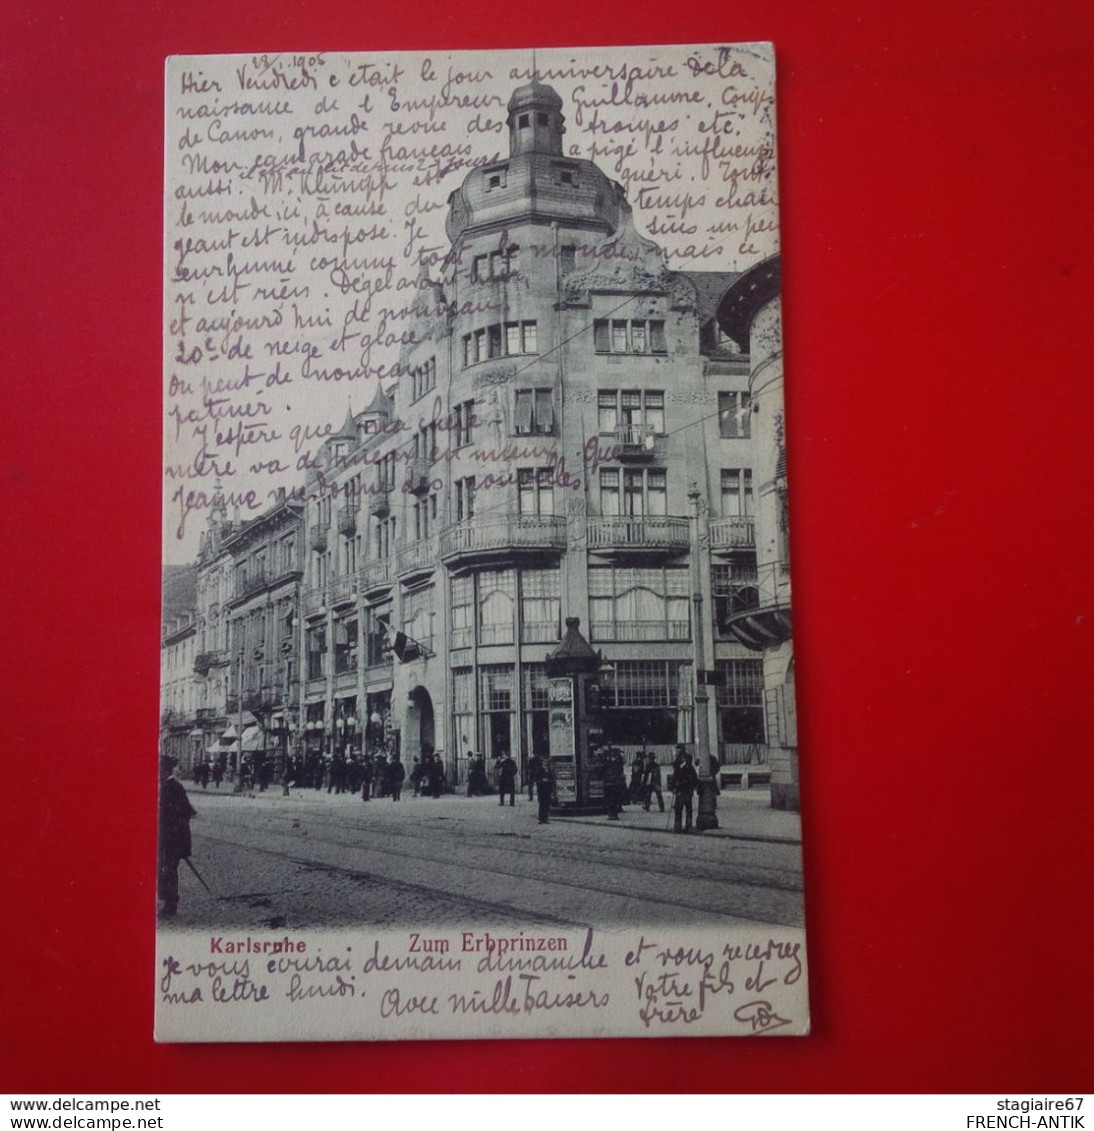 28/1.1906
Hier Vendredi c'était le jour anniversaire de la
naissance de l'Empereur Guillaume. Coups
de Canon, grande revue des troupes etc.
Mon camarade français a pigé l'influenza
il est au lit depuis 2 jours
aussi. M. Klümpp est guéri. Tout
le monde ici, à cause du temps chan
geant est indisposé. Je suis un peu
enrhumé comme tout le monde, mais ce
n'est rien. Dégel avant hier,
et aujourd'hui de nouveau
20c de neige et glace.
On peut de nouveau
patiner.
J'espère que ma chère
mère va de mieux en mieux. Que
Jeanne me donne des nouvelles.
Karlsruhe Zum Erbprinzen
Je vous écrirai demain dimanche et vous recevrez
ma lettre lundi. Avec mille baisers Votre fils et
frère
stagiaire67
FRENCH-ANTIK
https://www.delcampe.net
https://www.delcampe.net